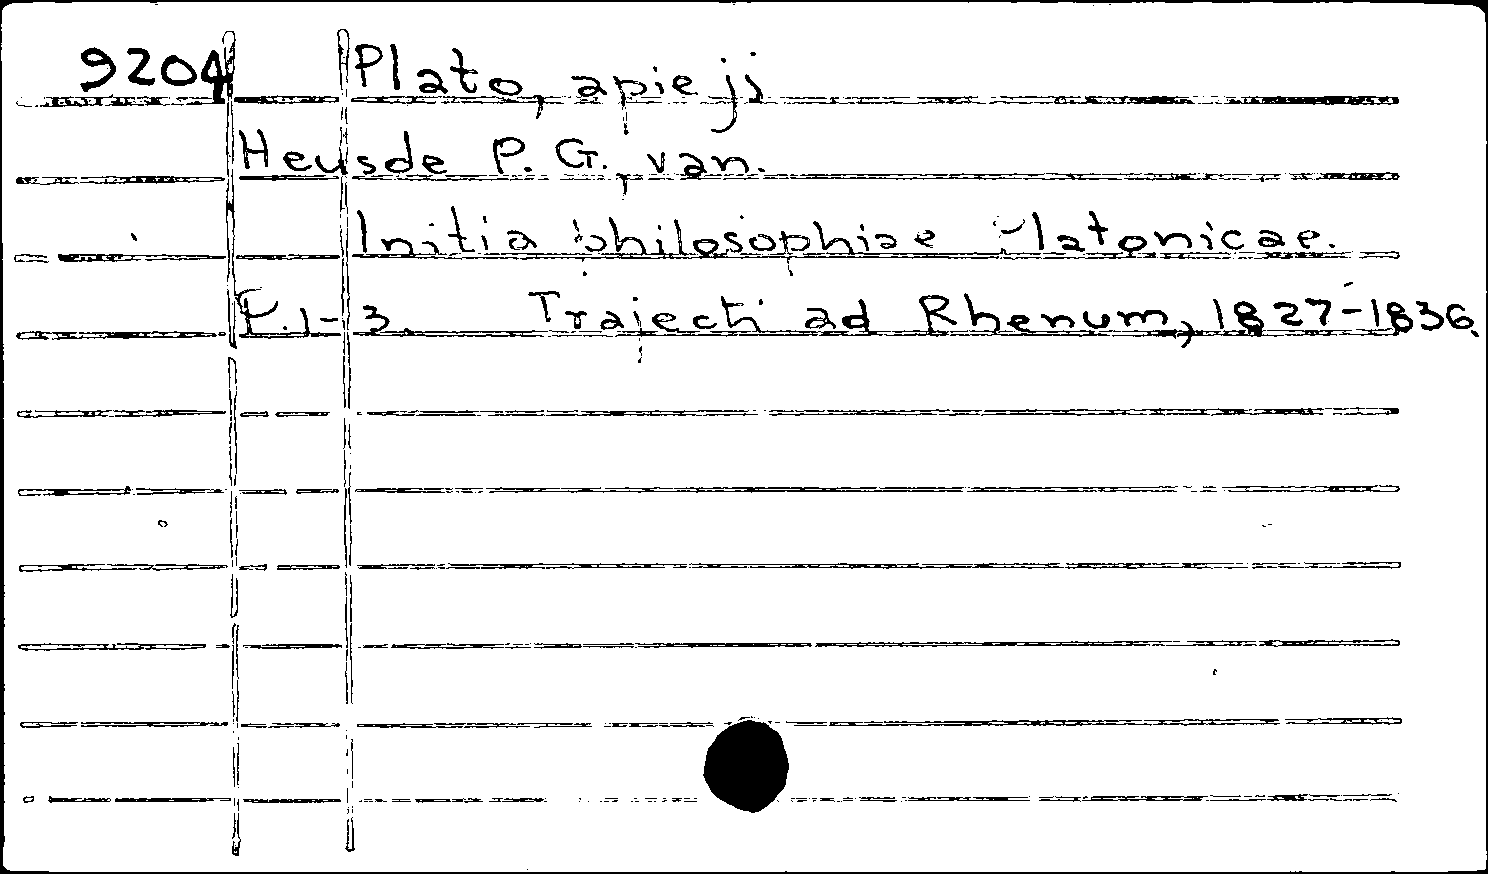 9204 Plato, apie jį
Heusde P. G., van.
Initia philosophiae Platonicae.
P. 1-3. Trajecti ad Rhenum, 1827-1836.